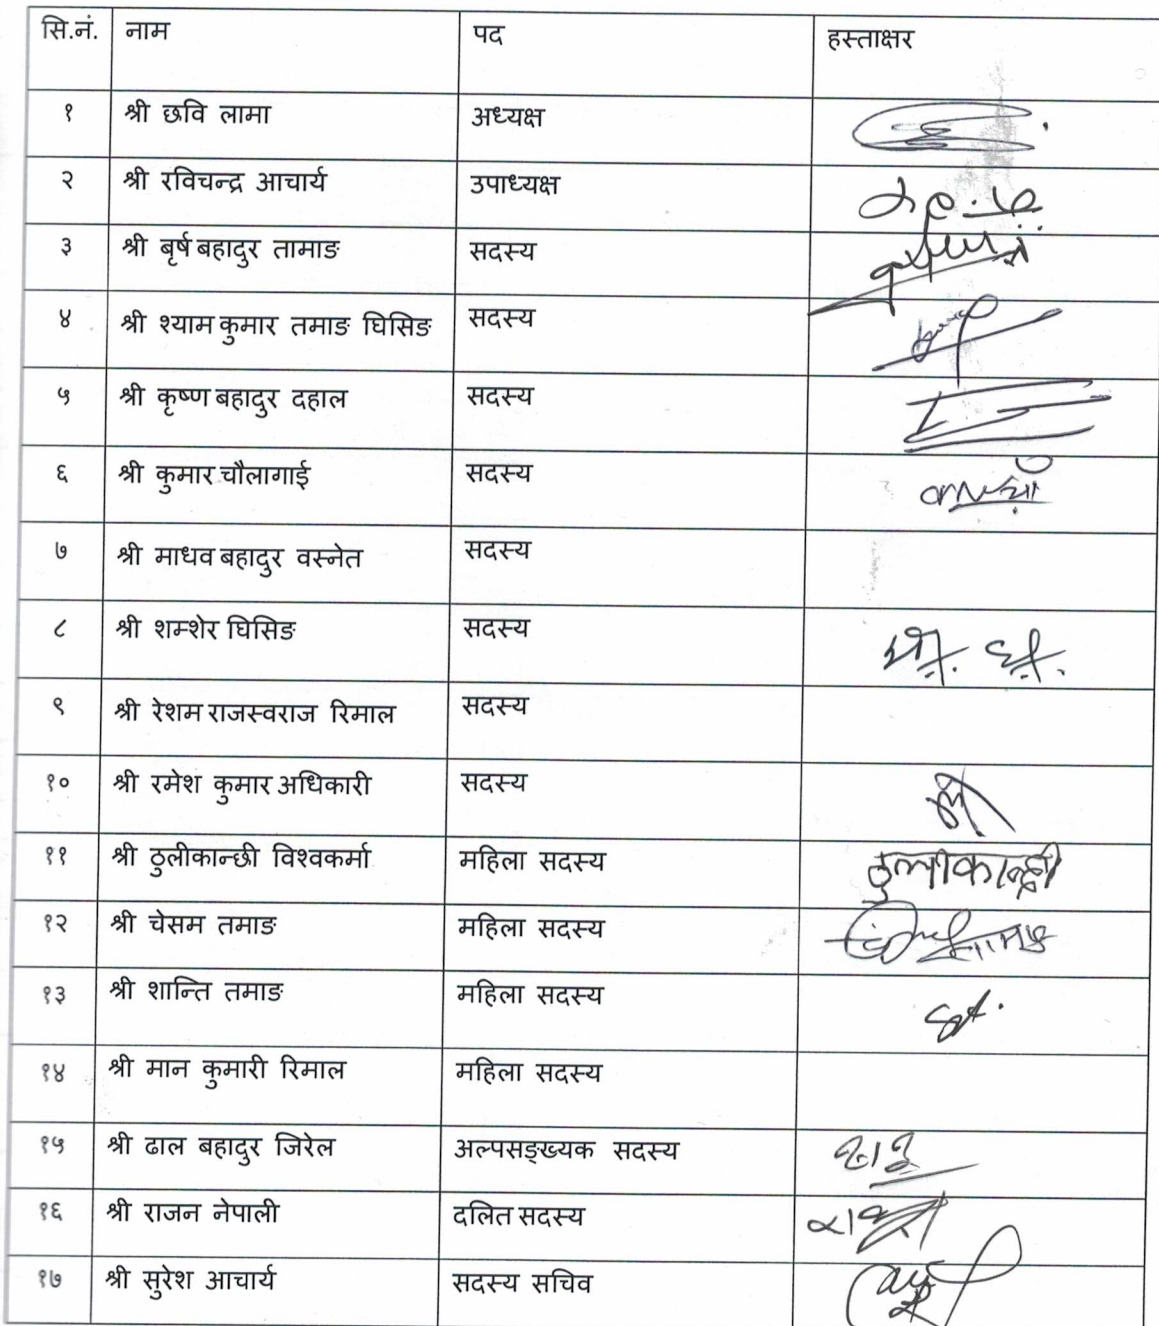 सि.नं. नाम पद हस्ताक्षर
१ श्री छवि लामा अध्यक्ष
२ श्री रविचन्द्र आचार्य उपाध्यक्ष
३ श्री बृर्ष बहादुर तामाङ सदस्य
४ श्री श्याम कुमार तमाङ घिसिङ सदस्य
५ श्री कृष्ण बहादुर दहाल सदस्य
६ श्री कुमार चौलागाई सदस्य
७ श्री माधव बहादुर वस्नेत सदस्य
८ श्री शम्शेर घिसिङ सदस्य
९ श्री रेशम राजस्वराज रिमाल सदस्य
१० श्री रमेश कुमार अधिकारी सदस्य
११ श्री ठुलीकान्छी विश्वकर्मा महिला सदस्य ठुलीकान्छी
१२ श्री चेसम तमाङ महिला सदस्य
१३ श्री शान्ति तमाङ महिला सदस्य
१४ श्री मान कुमारी रिमाल महिला सदस्य
१५ श्री ढाल बहादुर जिरेल अल्पसङ्ख्यक सदस्य
१६ श्री राजन नेपाली दलित सदस्य
१७ श्री सुरेश आचार्य सदस्य सचिव